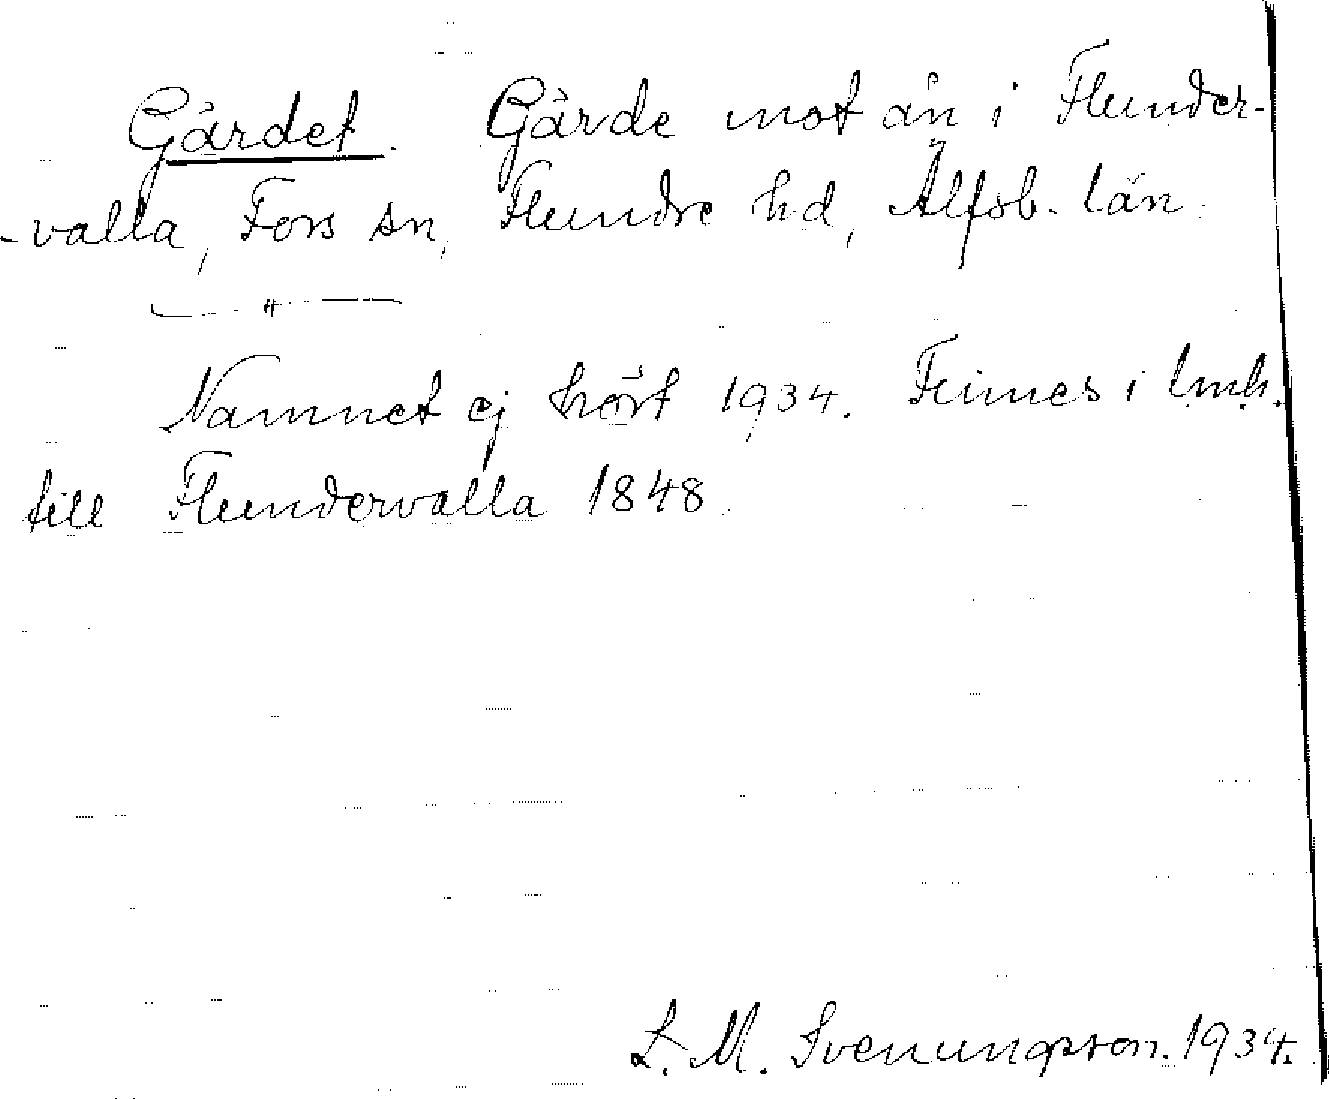 Gärdet. Gärde mot ån i Flunder-
-valla, Fors sn, Flundre hd, Älfsb. län.
— " —
Namnet ej hört 1934. Finnes i lmh.
till Flundervalla 1848.
L. M. Svenungsson. 1934.